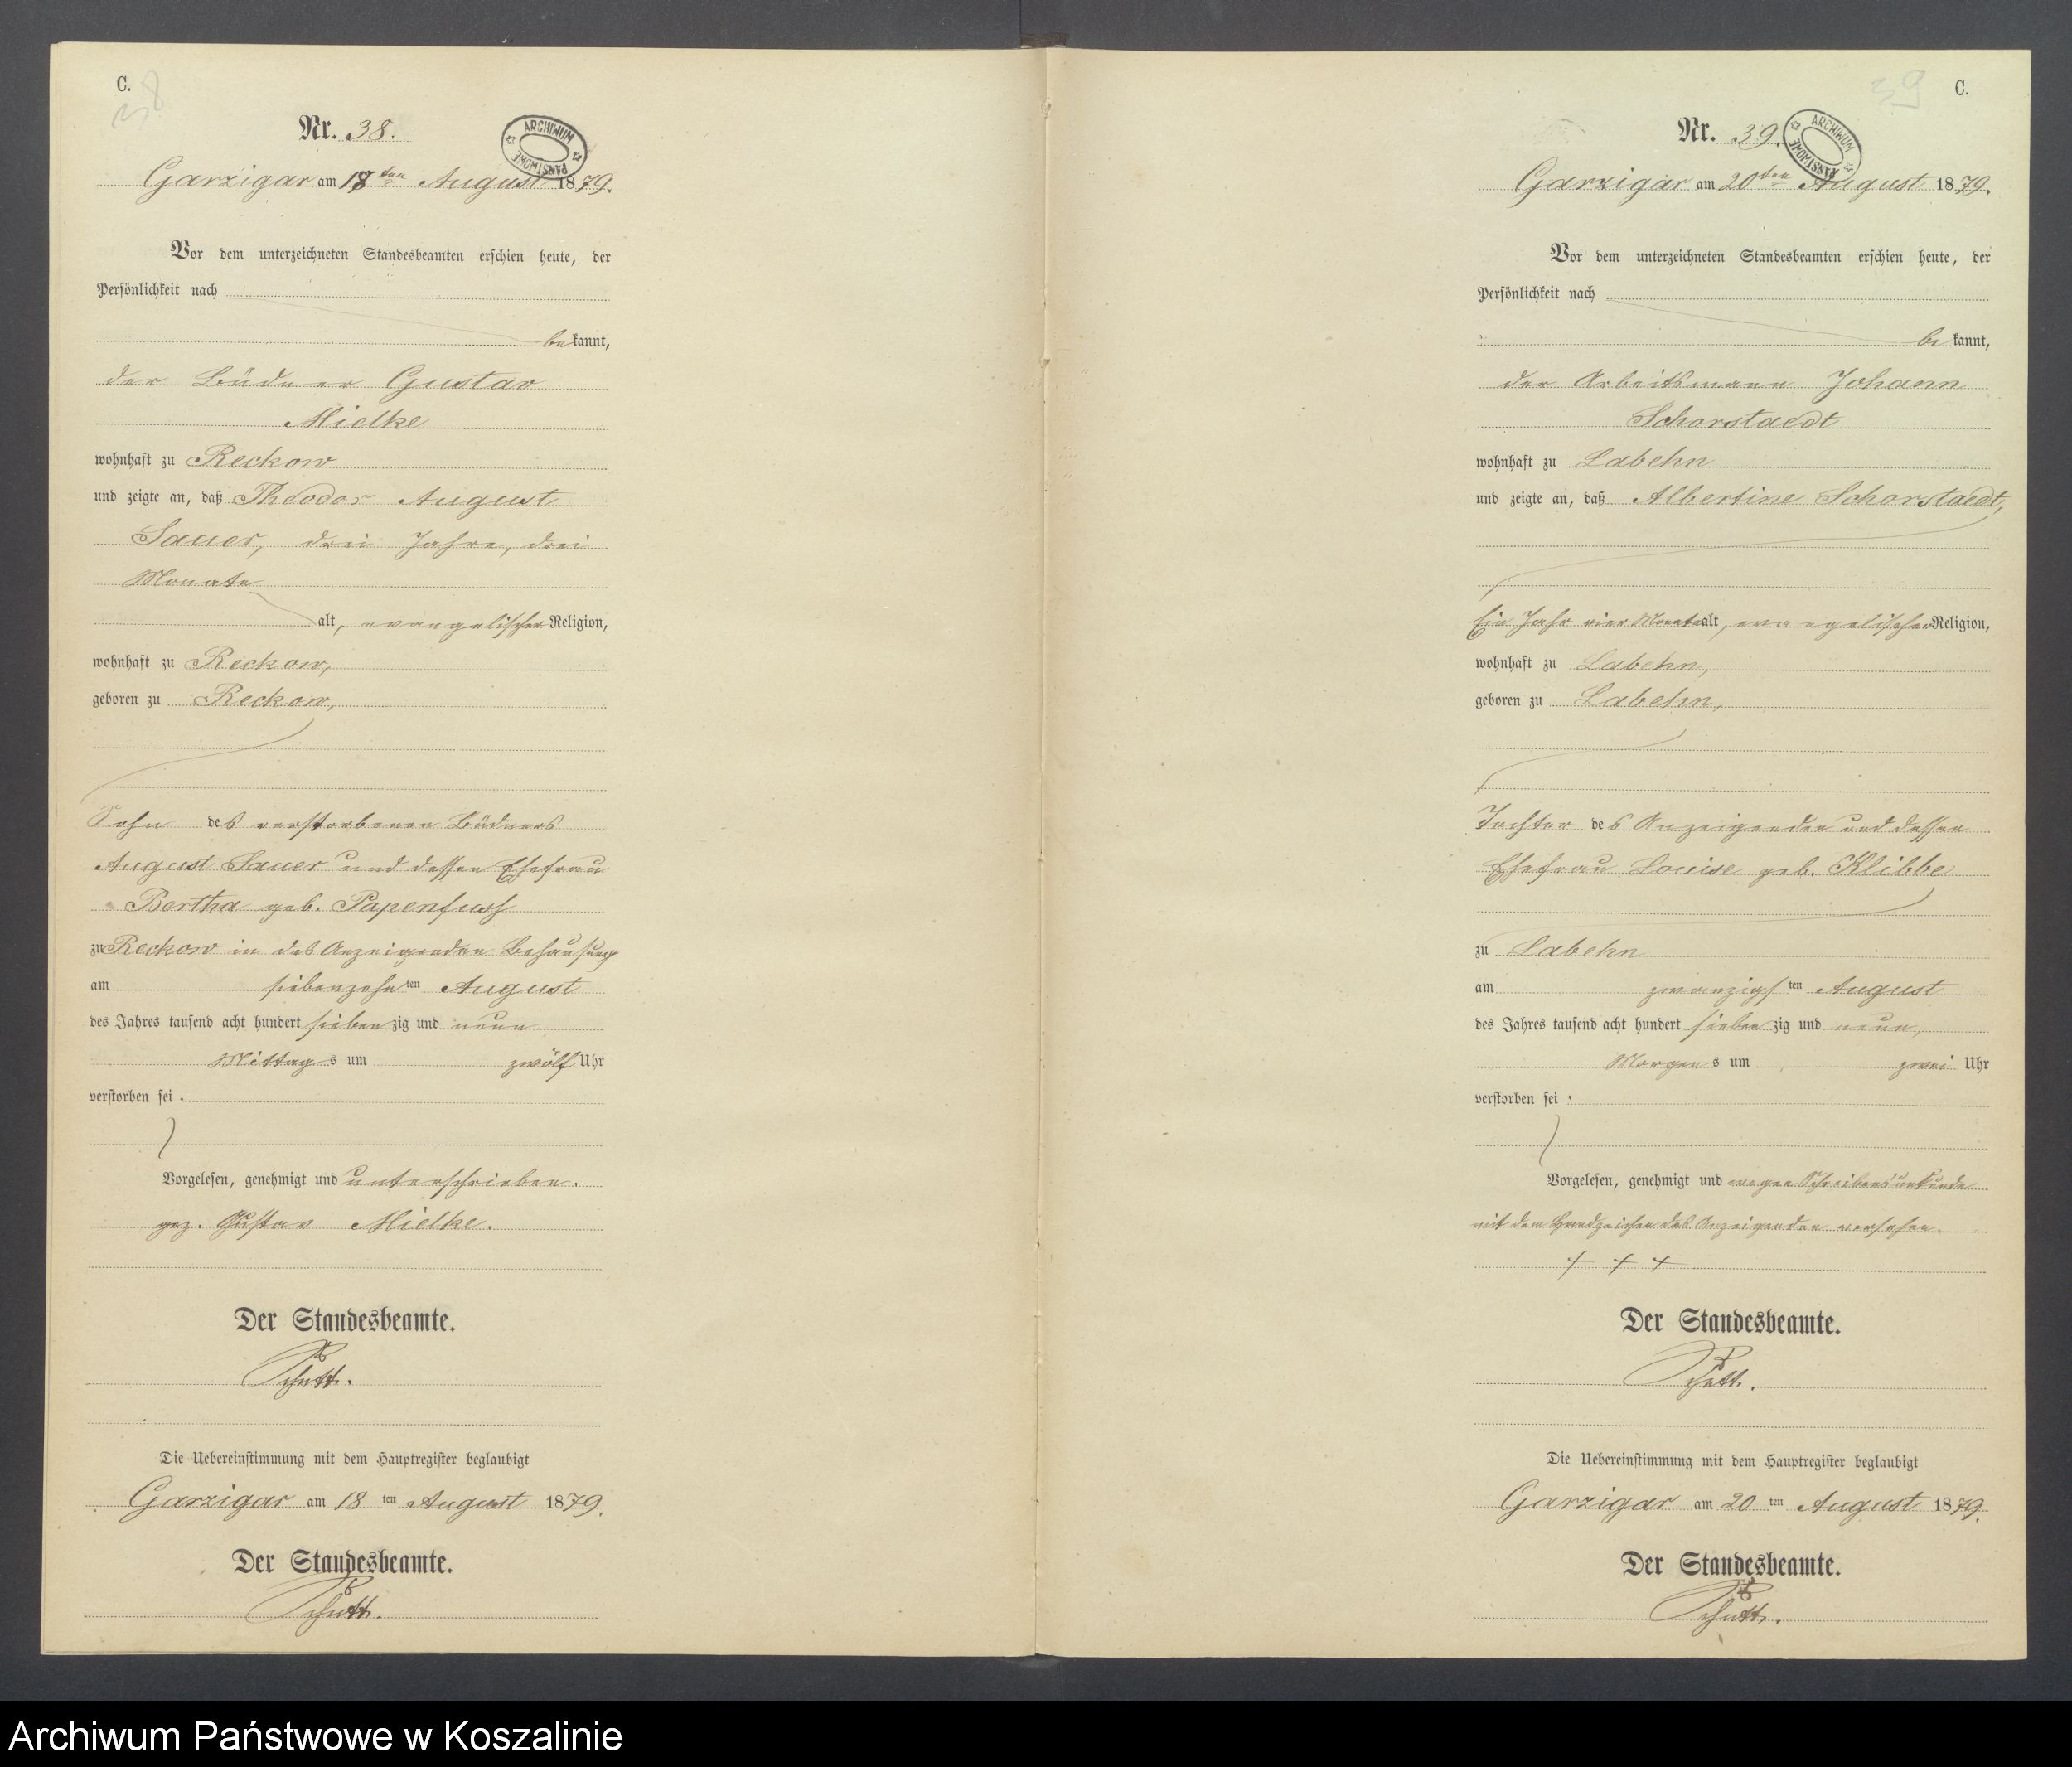 C.
38
Nr. 38.
ARCHIWUM PAŃSTWOWE
Garzigar am 18ten August 1879.
Vor dem unterzeichneten Standesbeamten erschien heute, der
Persönlichkeit nach
bekannt,
der Büdner Gustav
Mielke
wohnhaft zu Reckow
und zeigte an, daß Theodor August
Sauer, drei Jahre, drei
Monate
alt, evangelischer Religion,
wohnhaft zu Reckow,
geboren zu Reckow,
Sohn des verstorbenen Büdners
August Sauer und dessen Ehefrau
Bertha geb. Papenfuss
zu Reckow in des Anzeigenden Behausung
am siebenzehnten August
des Jahres tausend acht hundert siebenzig und neun
Mittags um zwölf Uhr
verstorben sei.
Vorgelesen, genehmigt und unterschrieben.
gez. Gustav Mielke.
Der Standesbeamte.
Schütt.
Die Uebereinstimmung mit dem Hauptregister beglaubigt
Garzigar am 18ten August 1879.
Der Standesbeamte.
Schütt.
39
C.
Nr. 39.
ARCHIWUM PAŃSTWOWE
Garzigar am 20ten August 1879.
Vor dem unterzeichneten Standesbeamten erschien heute, der
Persönlichkeit nach
bekannt,
der Arbeitsmann Johann
Schorstaedt
wohnhaft zu Labehn
und zeigte an, daß Albertine Schorstaedt,
Ein Jahr vier Monate alt, evangelischer Religion,
wohnhaft zu Labehn,
geboren zu Labehn,
Tochter des Anzeigenden und dessen
Ehefrau Louise geb. Klibbe
zu Labehn
am zwanzigsten August
des Jahres tausend acht hundert siebenzig und neun,
Morgens um zwei Uhr
verstorben sei.
Vorgelesen, genehmigt und wegen Schreibensunkunde
mit dem Handzeichen des Anzeigenden versehen.
+ + +
Der Standesbeamte.
Schütt.
Die Uebereinstimmung mit dem Hauptregister beglaubigt
Garzigar am 20ten August 1879.
Der Standesbeamte.
Schütt.
Archiwum Państwowe w Koszalinie